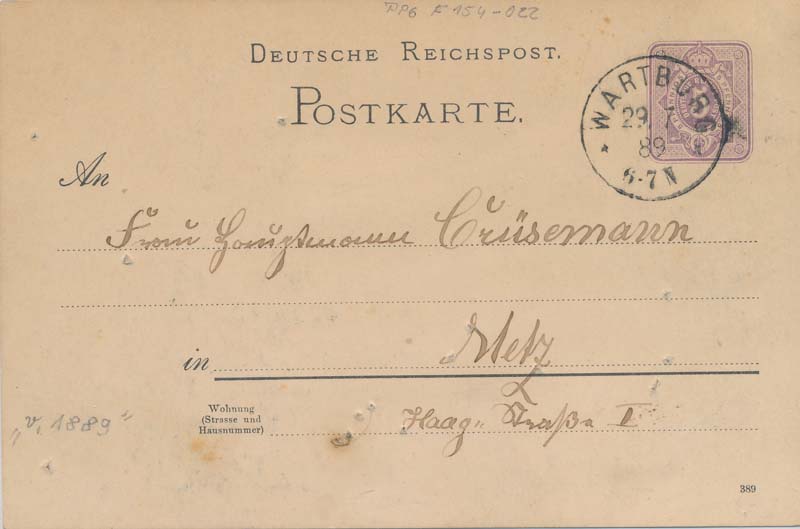 PP6 F 154-022
DEUTSCHE REICHSPOST.
POSTKARTE.
WARTBURG
29. 7
89
6-7 N
An
Frau Hauptmann Crüsemann
in Metz
Wohnung
(Strasse und
Hausnummer)
Haag. Straße I
"v. 1889"
389